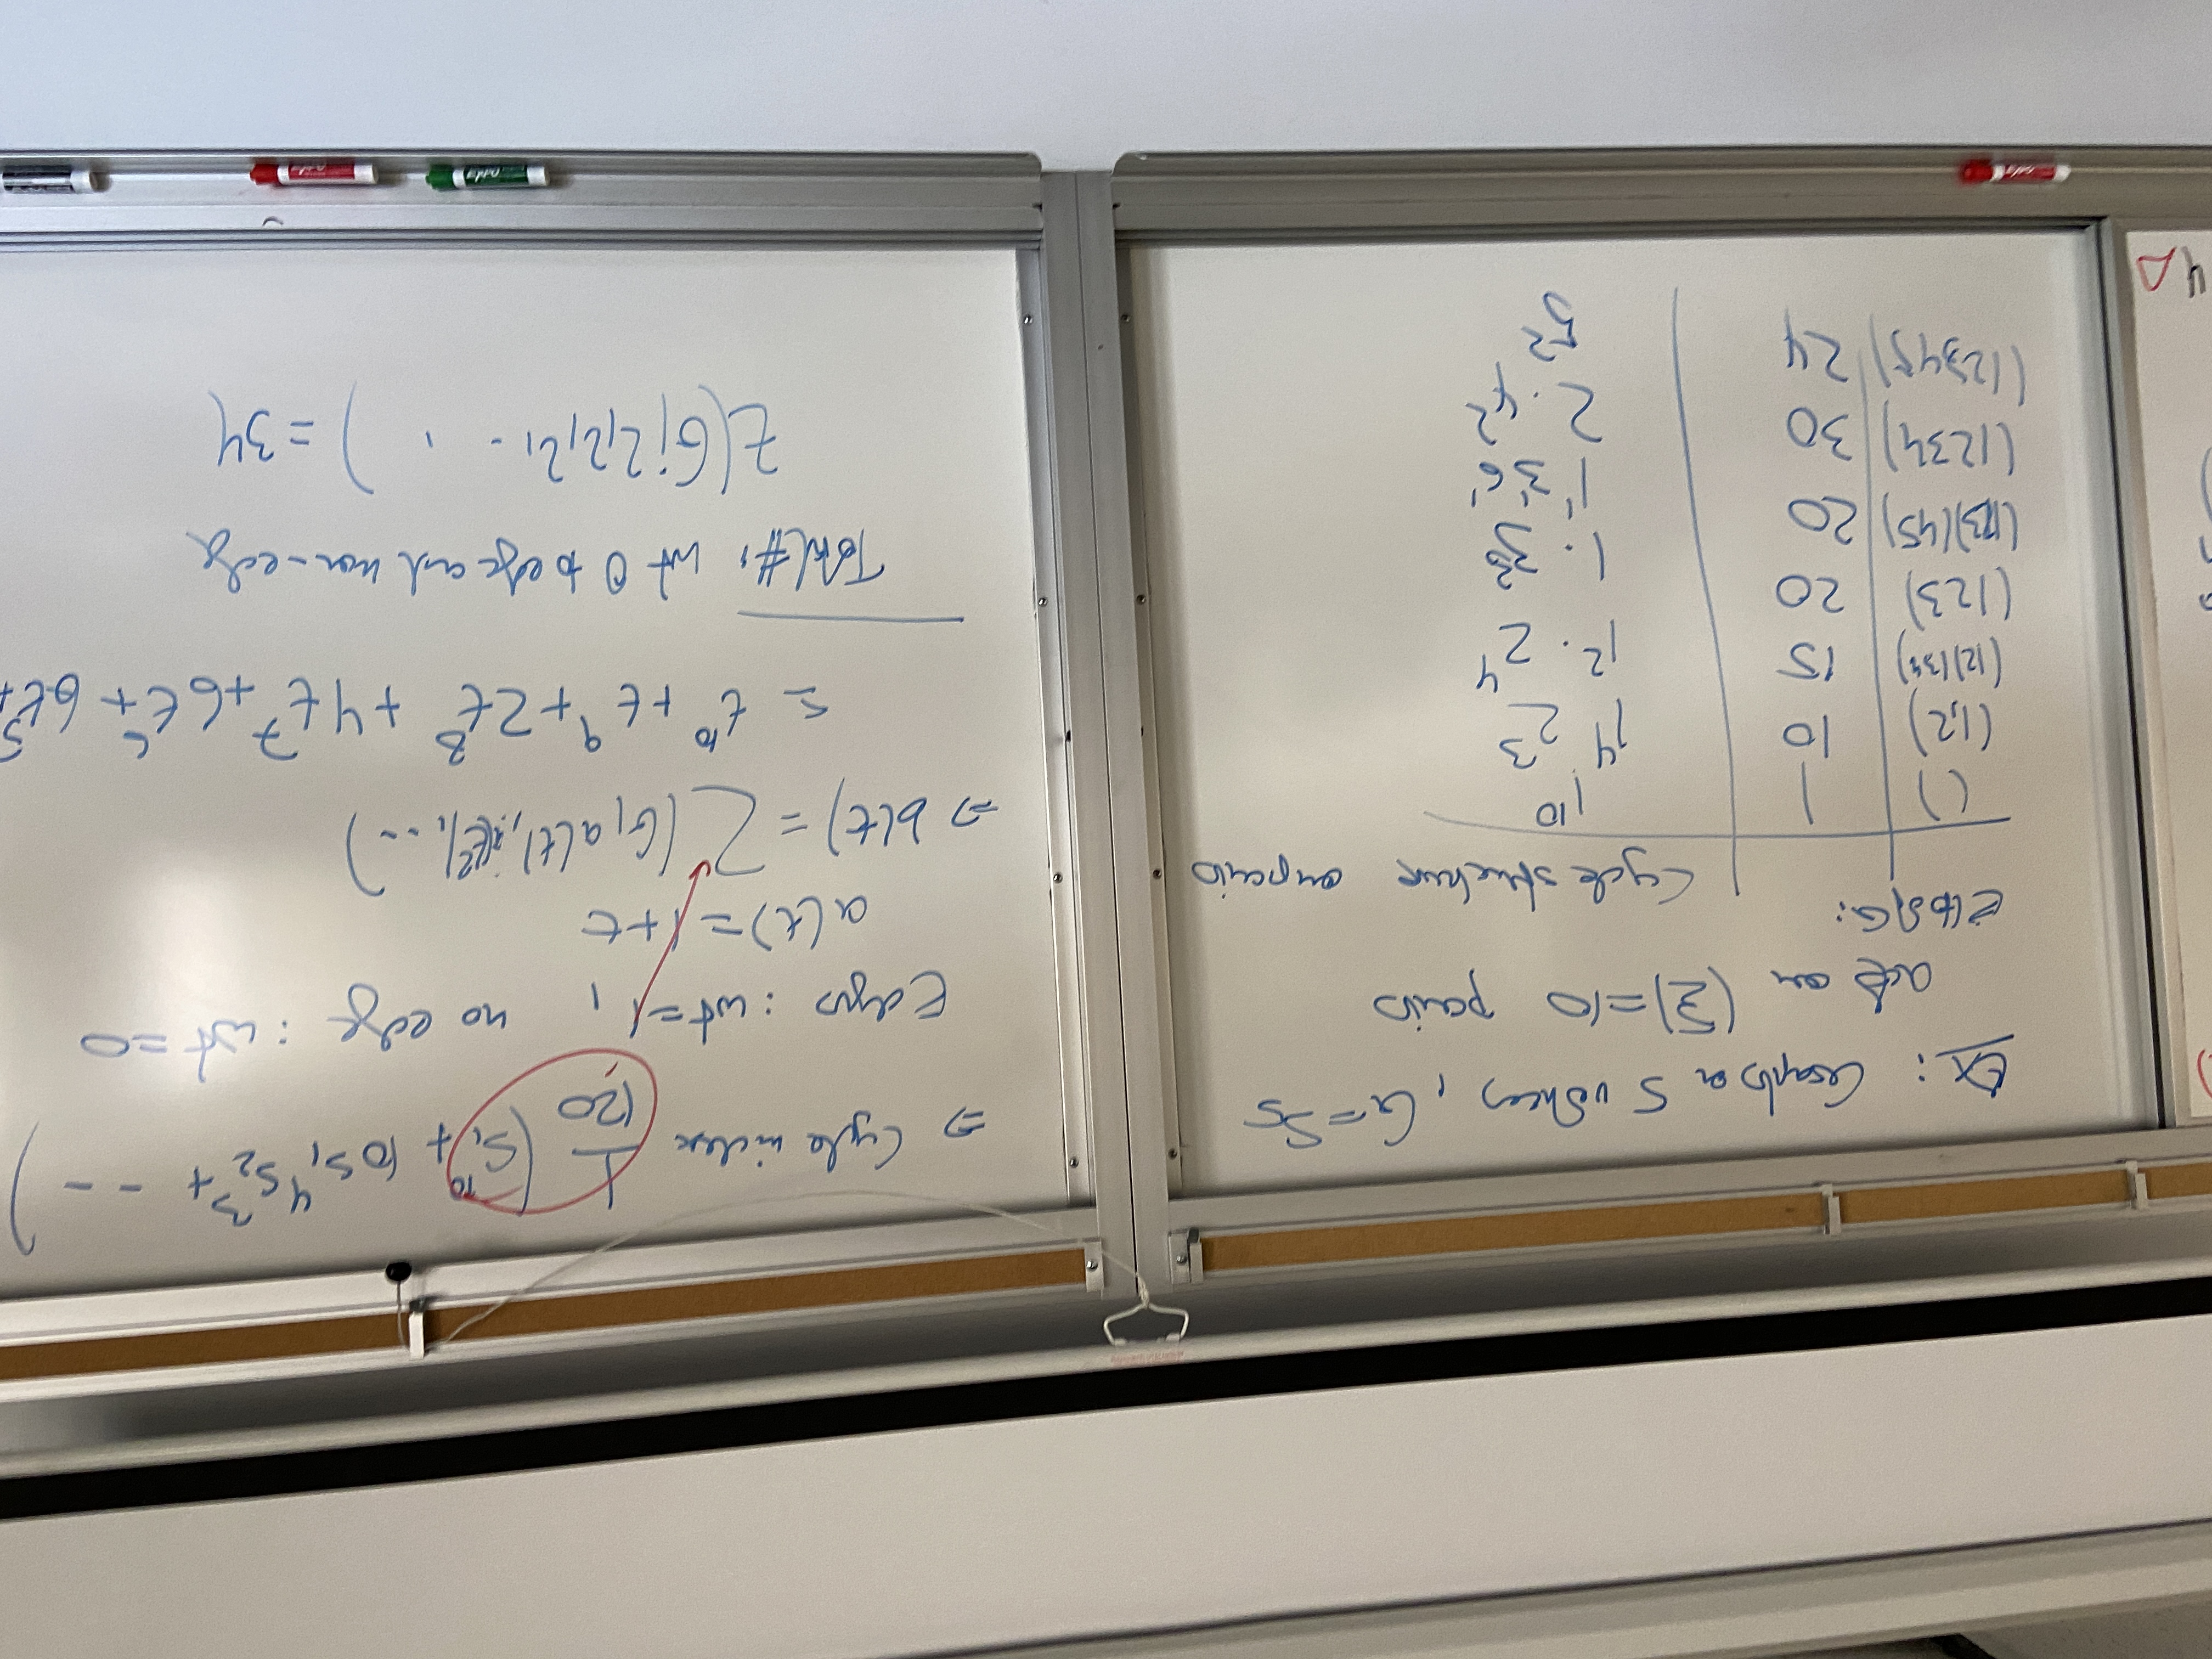 Ex: Graphs on 5 vertices, G=S5
acts on (5 2)=10 pairs
Elts of G: | | Cycle structure on pairs
() | 1 | 1^10
(1,2) | 10 | 1^4 2^3
(12)(34) | 15 | 1^2 · 2^4
(123) | 20 | 1 · 3^3
(123)(45) | 20 | 1^1 3^1 6^1
(1234) | 30 | 2 · 4^2
(12345) | 24 | 5^2
⇒ Cycle index 1/120 (s_1^10 + 10 s_1^4 s_2^3 + - - )
Edges : wt=1, no edge : wt=0
a(t) = 1+t
⇒ b(t) = Z(G, a(t), a(t^2), ...)
= t^10 + t^9 + 2t^8 + 4t^7 + 6t^6 + 6t^5 +
Total #: wt 0 to edge and non-edge
Z(G; 2,2,2, - , ) = 34
4
EXPO
EXPO
EXPO